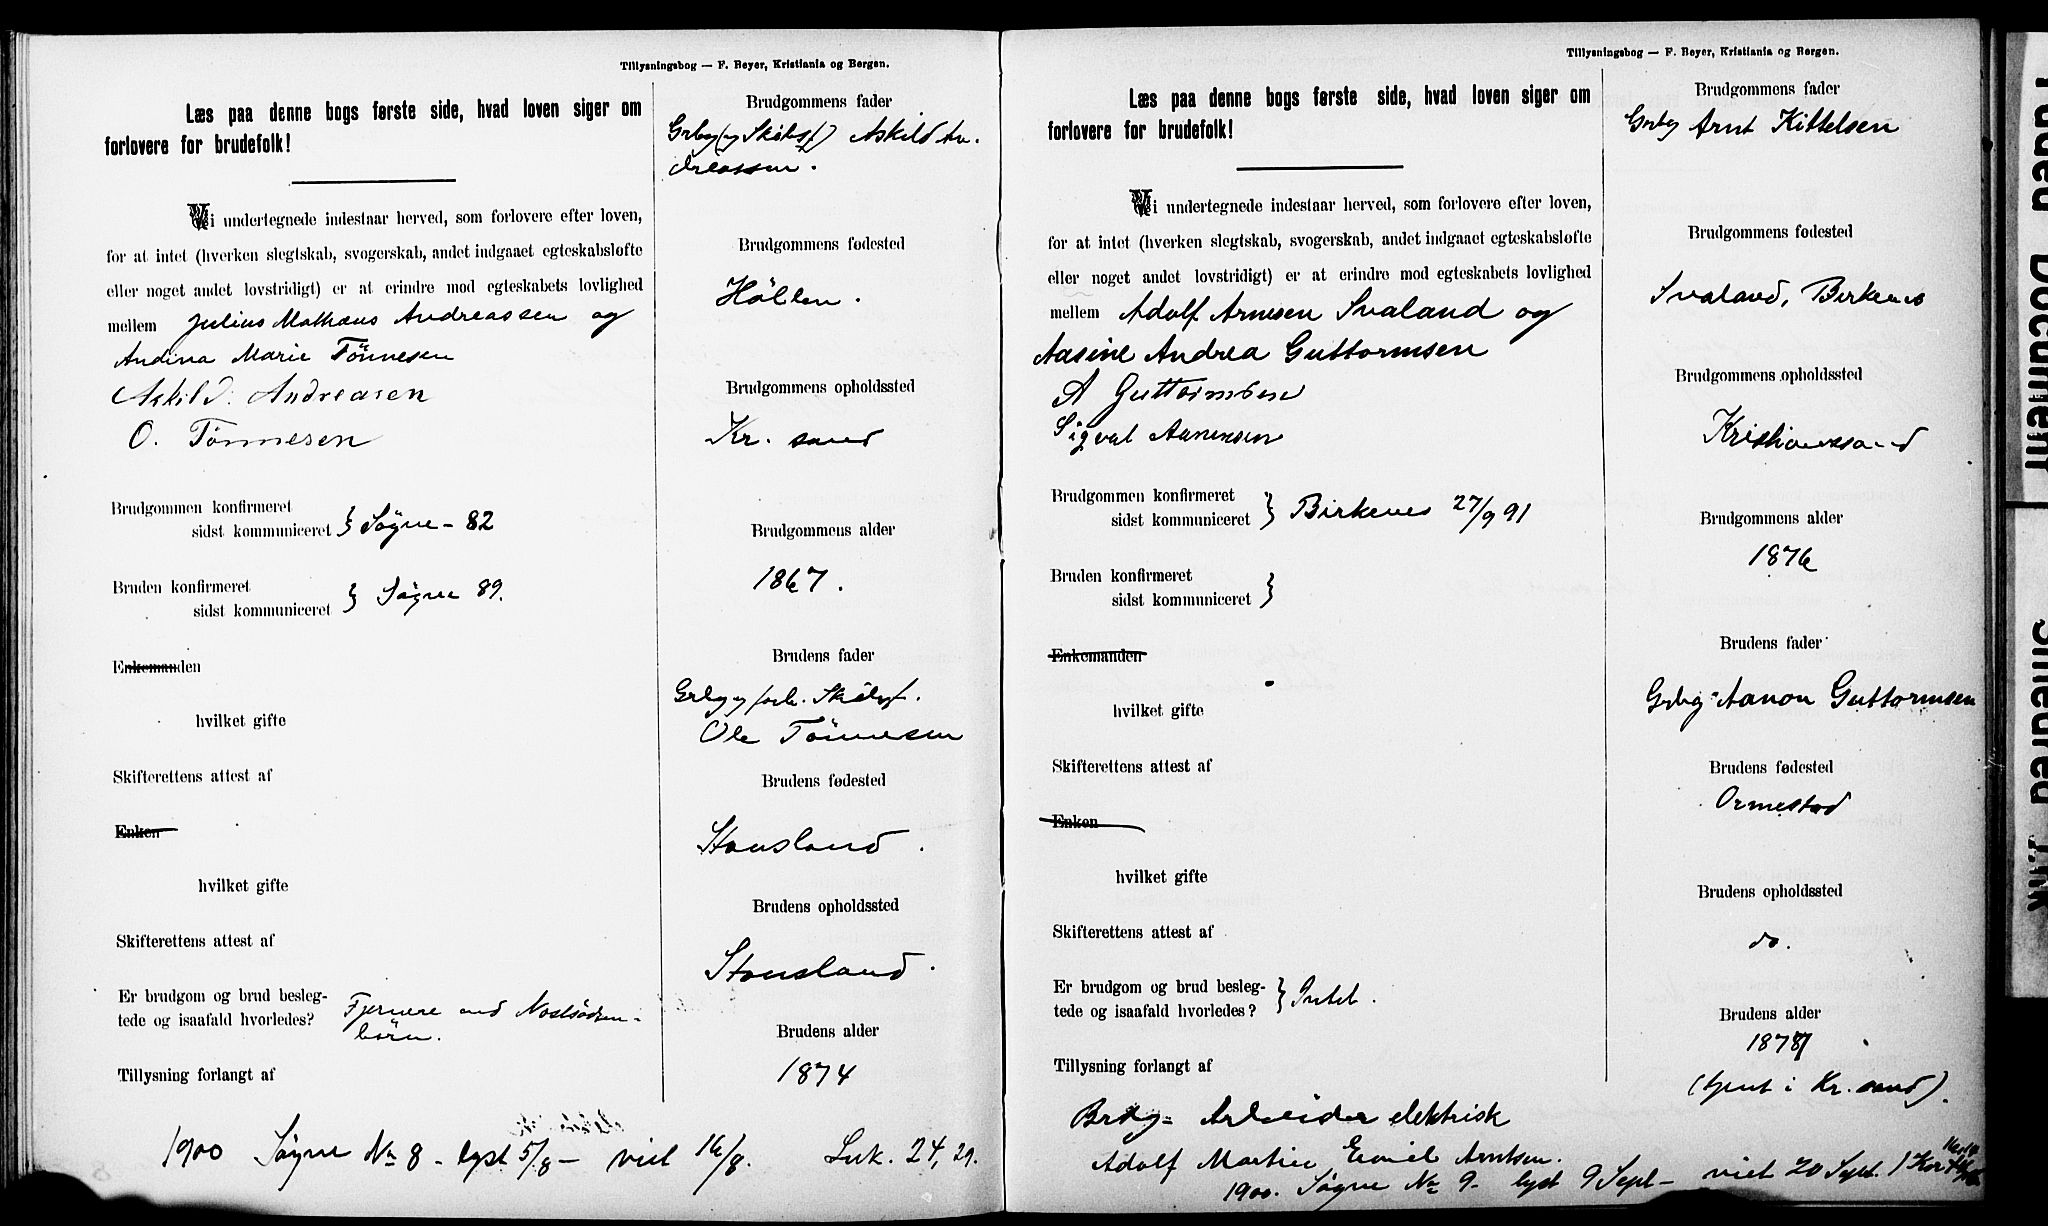 Tillysningsbog — F. Beyer, Kristiania og Bergen.
Læs paa denne bogs første side, hvad loven siger om
forlovere for brudefolk!
Vi undertegnede indestaar herved, som forlovere efter loven,
for at intet (hverken slegtskab, svogerskab, andet indgaaet egteskabsløfte
eller noget andet lovstridigt) er at erindre mod egteskabets lovlighed
mellem Julius Mathæus Andreassen og
Andina Marie Tönnesen
Askild Andreasen
O. Tönnesen
Brudgommen konfirmeret
sidst kommuniceret } Søgne - 82
Bruden konfirmeret
sidst kommuniceret } Søgne 89.
Enkemanden
hvilket gifte
Skifterettens attest af
Enken
hvilket gifte
Skifterettens attest af
Er brudgom og brud beslegtede og isaafald hvorledes? Fjernere end Næstsödskenbörn.
Tillysning forlangt af
Brudgommens fader
Grbg (og Skibsf) Askild An-
dreassen.
Brudgommens fødested
Hölen.
Brudgommens opholdssted
Kr. sand
Brudgommens alder
1867.
Brudens fader
Grbg og forh. Skibsf.
Ole Tönnesen
Brudens fødested
Stausland.
Brudens opholdssted
Stausland.
Brudens alder
1874
1900 Søgne No 8 - lyst 5/8 - viet 16/8. Luk. 24, 29.
Tillysningsbog — F. Beyer, Kristiania og Bergen.
Læs paa denne bogs første side, hvad loven siger om
forlovere for brudefolk!
Vi undertegnede indestaar herved, som forlovere efter loven,
for at intet (hverken slegtskab, svogerskab, andet indgaaet egteskabsløfte
eller noget andet lovstridigt) er at erindre mod egteskabets lovlighed
mellem Adolf Arnesen Svaland og
Aasine Andrea Guttormsen
A Guttormsen
Sigval Aanensen
Brudgommen konfirmeret
sidst kommuniceret } Birkenes 27/9 91
Bruden konfirmeret
sidst kommuniceret }
Enkemanden
hvilket gifte
Skifterettens attest af
Enken
hvilket gifte
Skifterettens attest af
Er brudgom og brud besleg-
tede og isaafald hvorledes? } Intet.
Tillysning forlangt af
Brudgommens fader
Grbg Arnt Kittelsen
Brudgommens fødested
Svaland, Birkenes
Brudgommens opholdssted
Kristianssand
Brudgommens alder
1876
Brudens fader
Grbg Aanon Guttormsen
Brudens fødested
Ormestad
Brudens opholdssted
do.
Brudens alder
1878
(tjent i Kr. sand).
Brdg = Arbeider elektrisk
Adolf Martin Emil Arntsen.
1900. Søgne No 9 - lyst 9 Sept - viet 20 Sept. 1 Kor